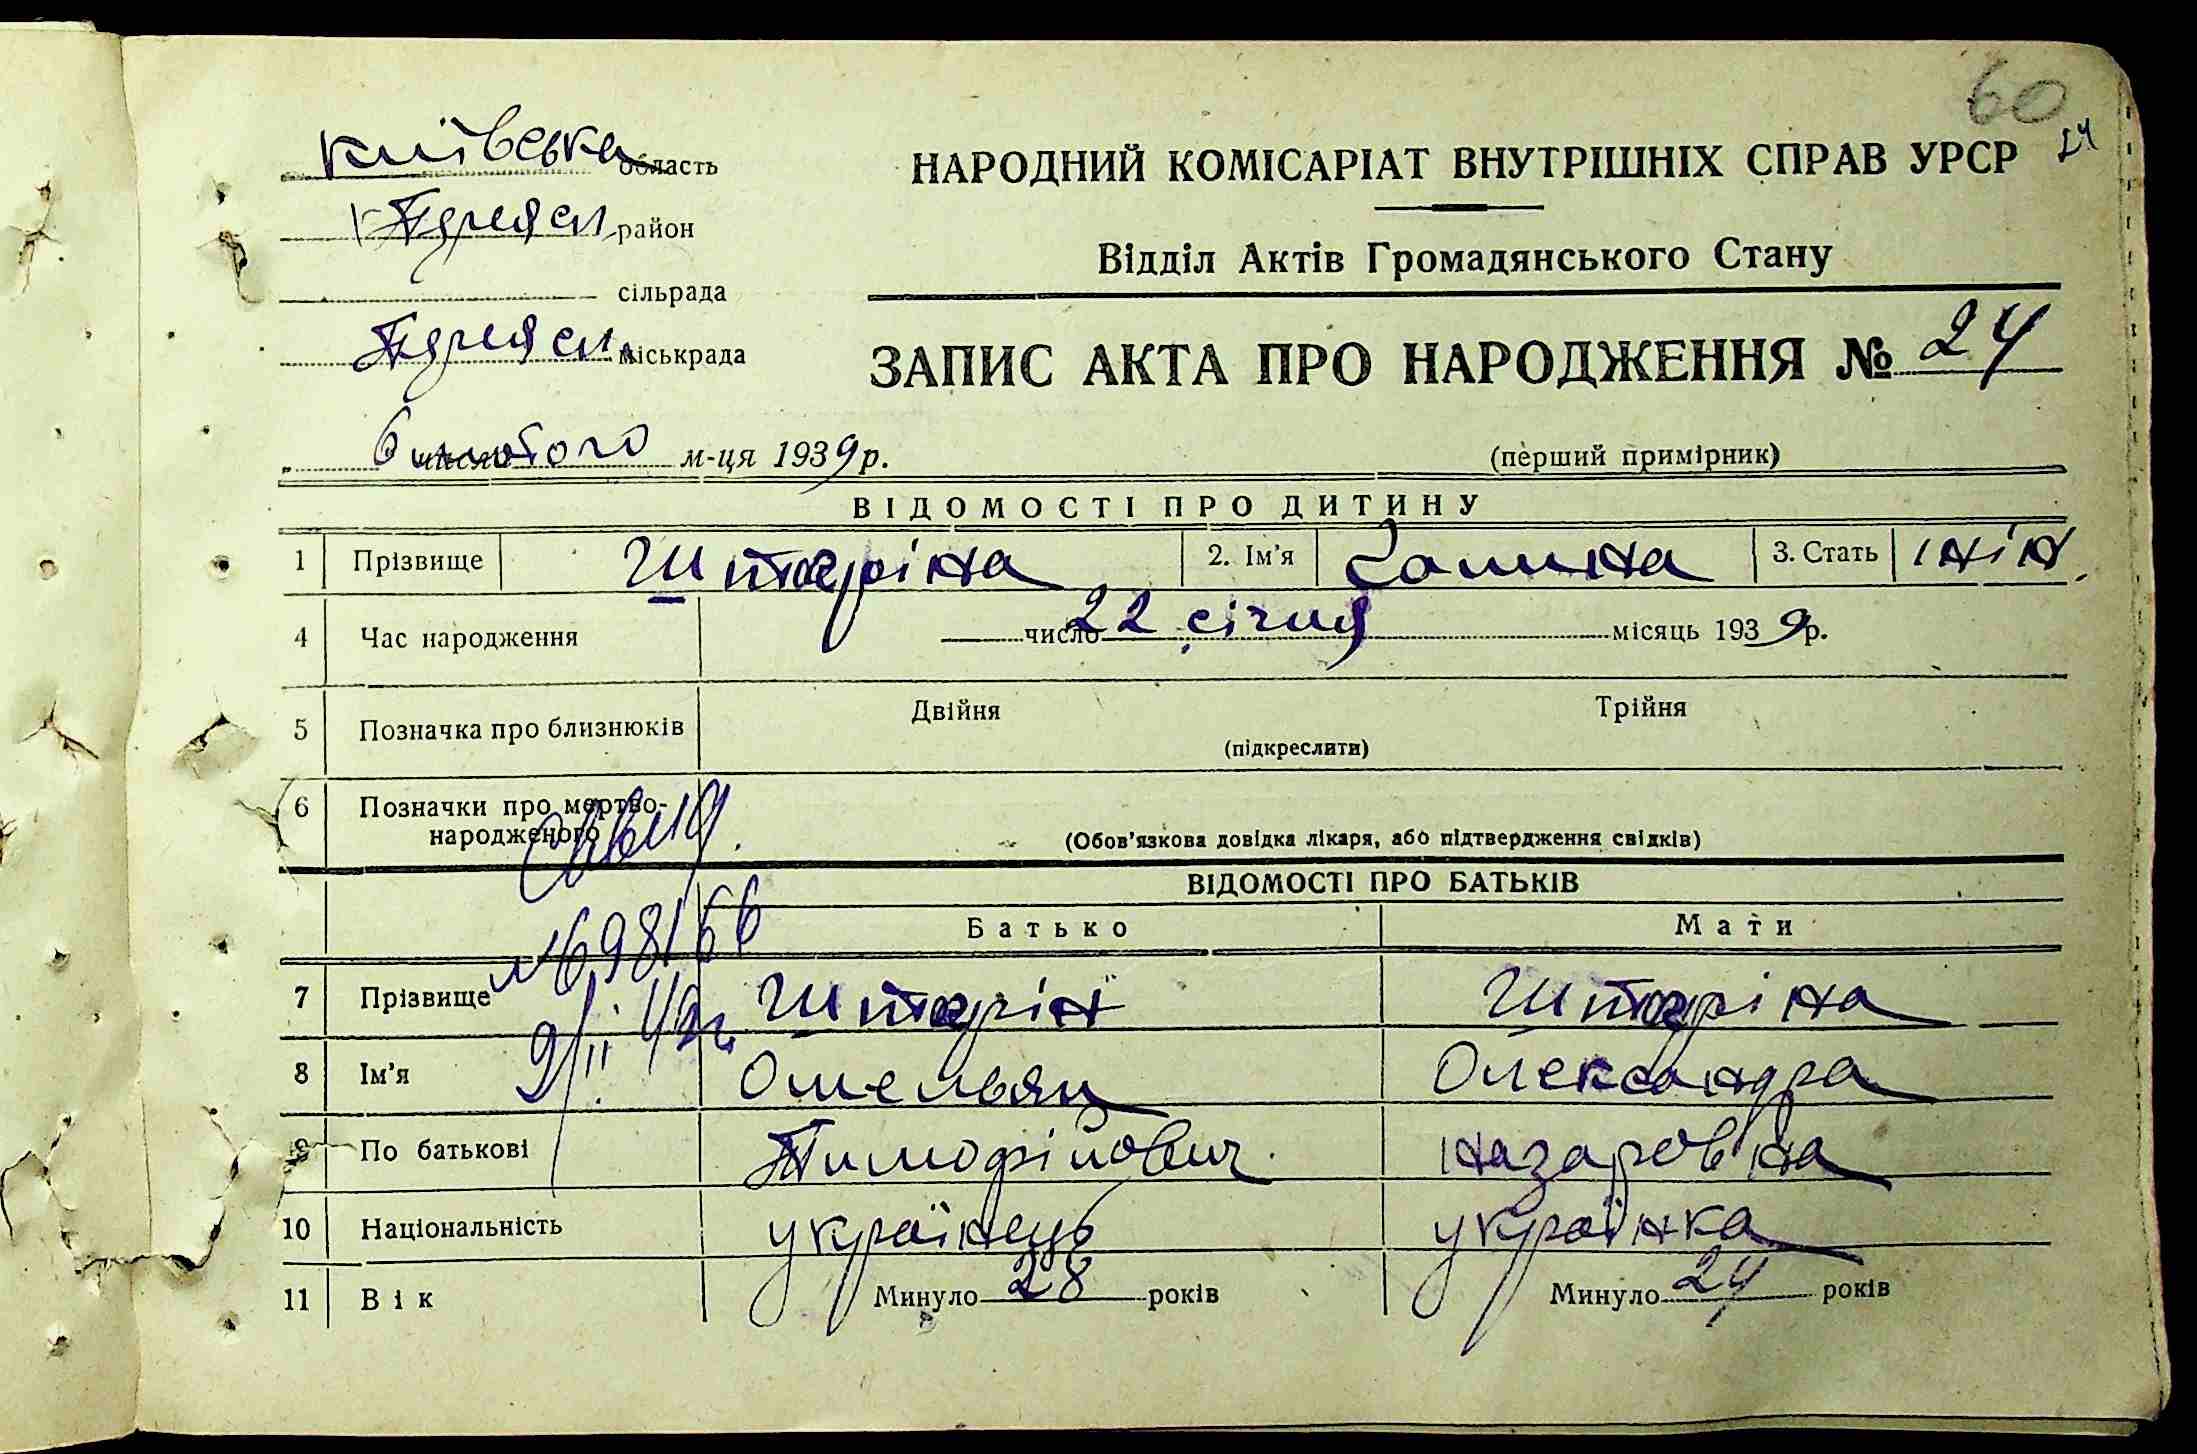 60
24
київська область
НАРОДНИЙ КОМІСАРІАТ ВНУТРІШНІХ СПРАВ УРСР
район
Відділ Актів Громадянського Стану
сільрада
міськрада
ЗАПИС АКТА ПРО НАРОДЖЕННЯ № 24
6 число лютого м-ця 1939 р.
(перший примірник)
ВІДОМОСТІ ПРО ДИТИНУ
1 Прізвище 2. Ім'я Галина 3. Стать жін.
4 Час народження число 22 січня місяць 1939 р.
5 Позначка про близнюків Двійня Трійня
(підкреслити)
6 Позначки про мертво-
народженого
(Обов'язкова довідка лікаря, або підтвердження свідків)
ВІДОМОСТІ ПРО БАТЬКІВ
Батько Мати
7 Прізвище
8 Ім'я Омельян Олександра
9 По батькові Тимофійович Назаровна
10 Національність українець українка
11 Вік Минуло 28 років Минуло 24 років